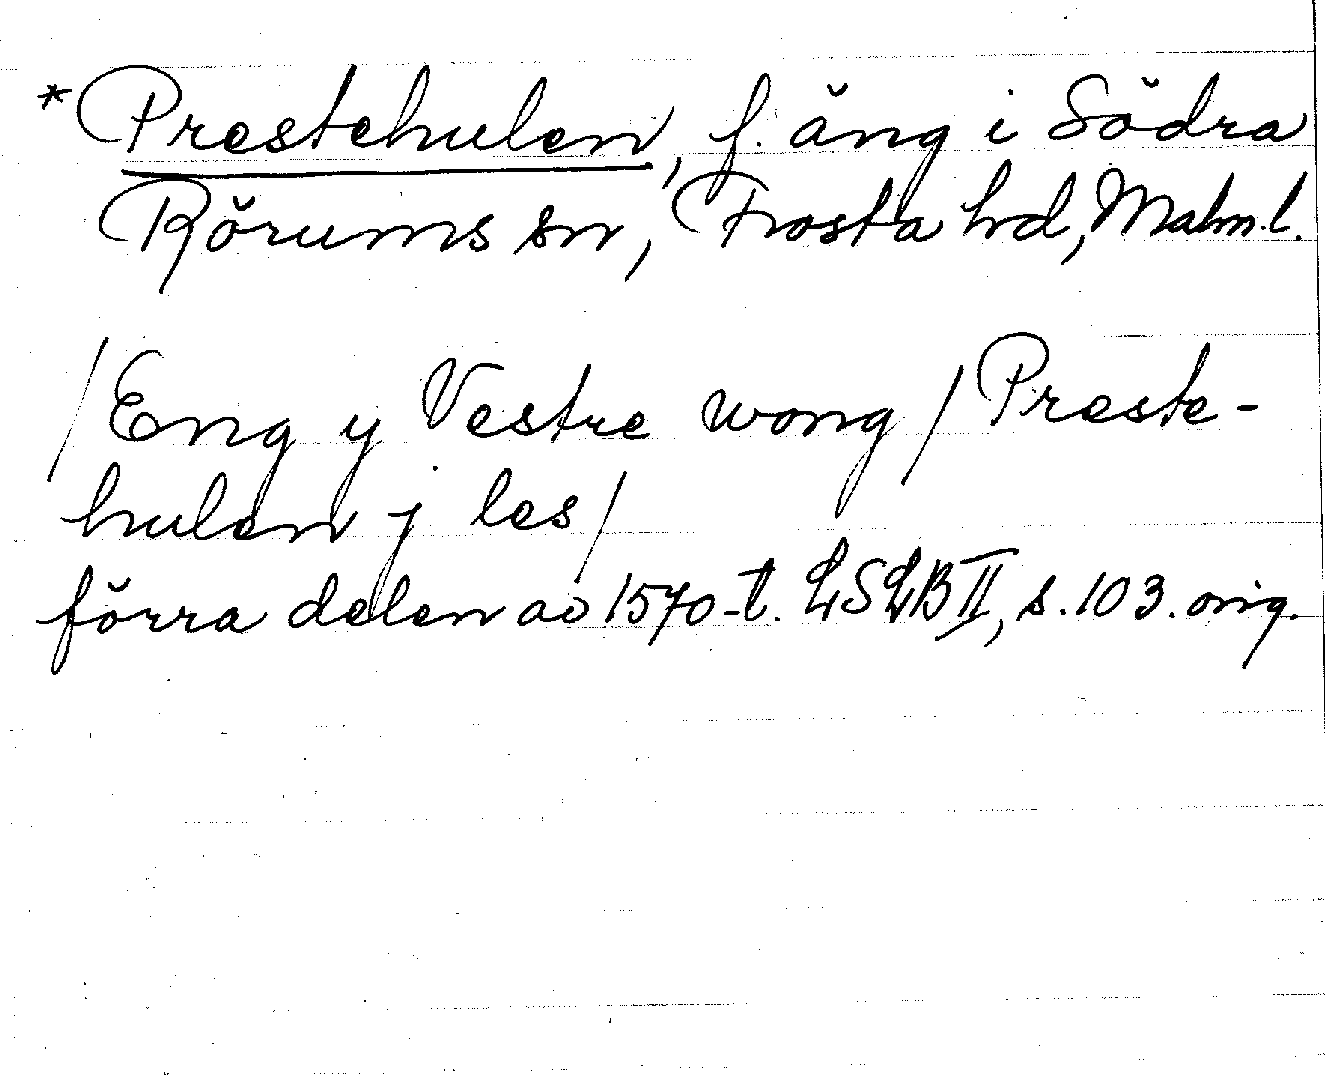 * Prestehulen, f. äng i Södra
Rörums sn, Frosta hd, Malm.l.
/Eng y Vestre wong/ Preste-
hulen j les/
förra delen av 1570-t. LSLB II, s. 103. orig.